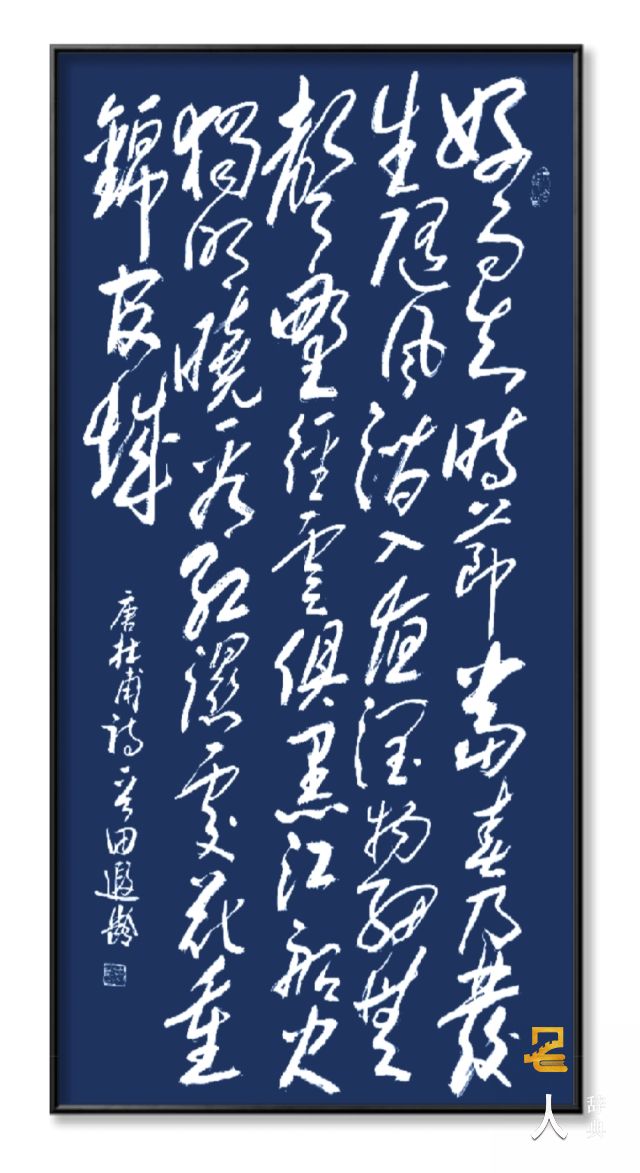 好雨知時節當春乃發
生隨風潛入夜潤物細無
聲野徑雲俱黑江船火
獨明曉看紅濕處花重
錦官城
唐杜甫詩 田遐齡
名人辞典